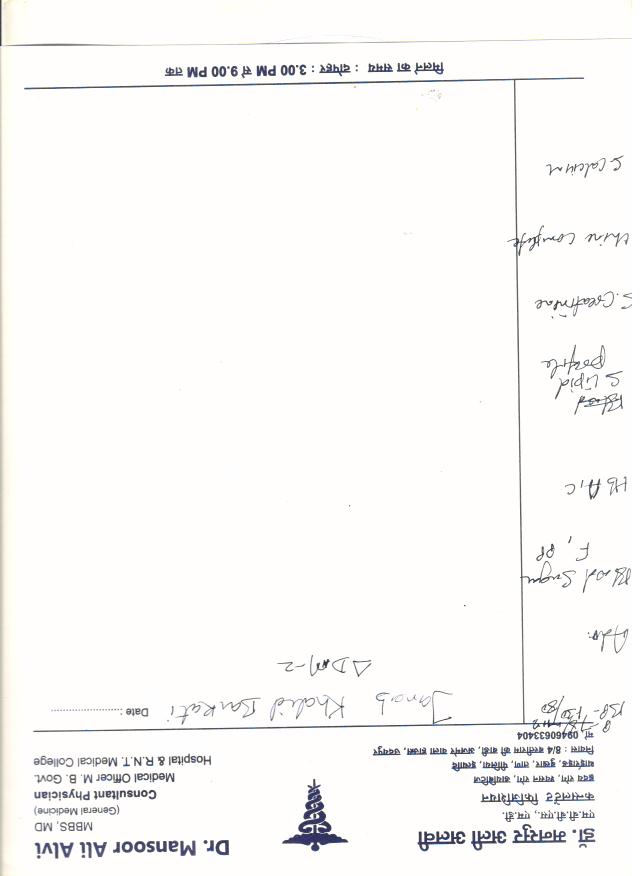 डॉ. मनसूर अली अलवी
एम.बी.बी.एस., एम.डी.
कन्सलटेंट फिजिशियन
हृदय रोग, श्वसन रोग, डायबिटिज
थाईराइड, बुखार, ताण, पीलिया, इत्यादि
निवास : 8/4 काजीवाड़ा की बाडी, अजमेर वाला हाउस, उदयपुर
मो. 09460633404
Dr. Mansoor Ali Alvi
MBBS, MD
(General Medicine)
Consultant Physician
Medical Officer M. B. Govt.
Hospital & R.N.T. Medical College
Date :
Janab Khalid Barkati
Δ DM-2
BP- 130/80
Adv.
Blood Sugar
F, PP
Hb A1C
S Lipid
profile
S. Creatinine
Urine Complete
S Calcium
मिलने का समय : दोपहर : 3.00 PM से 9.00 PM तक